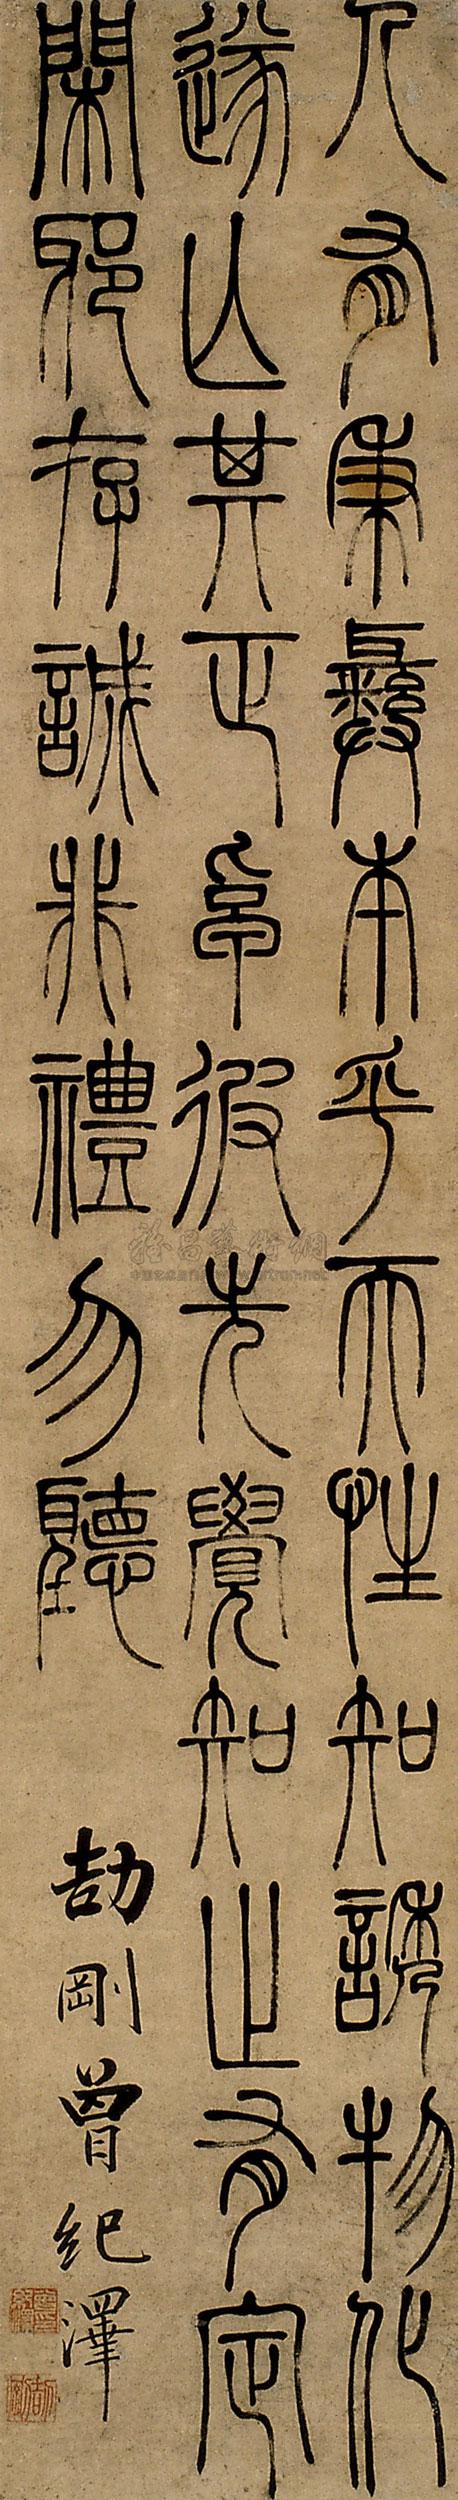 人有秉彝本乎天性知誘物化
遂亡其正卓彼先覺知止有定
閑邪存誠非禮勿聽
劼剛曾紀澤
雅昌藝術網